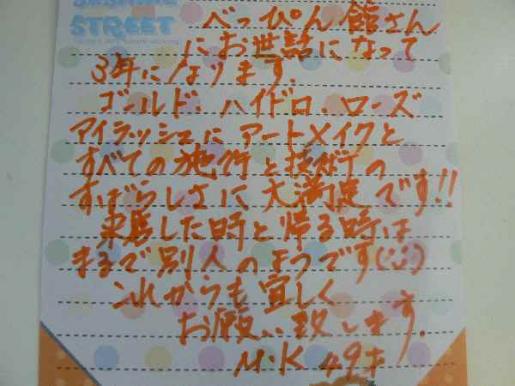 SESAME
STREET
べっぴん館さん
にお世話になって
3年になります。
ゴールド、ハイドロ、ローズ
アイラッシュにアートメイクと
すべての施術と技術の
すばらしさに大満足です!!
来店した時と帰る時は
まるで別人のようです(
これからも宜しく
お願い致します。
M・K 49才